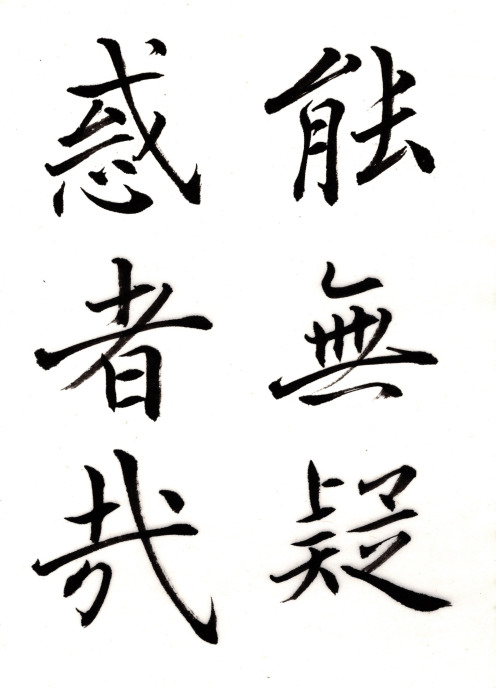 能無疑
惑者哉